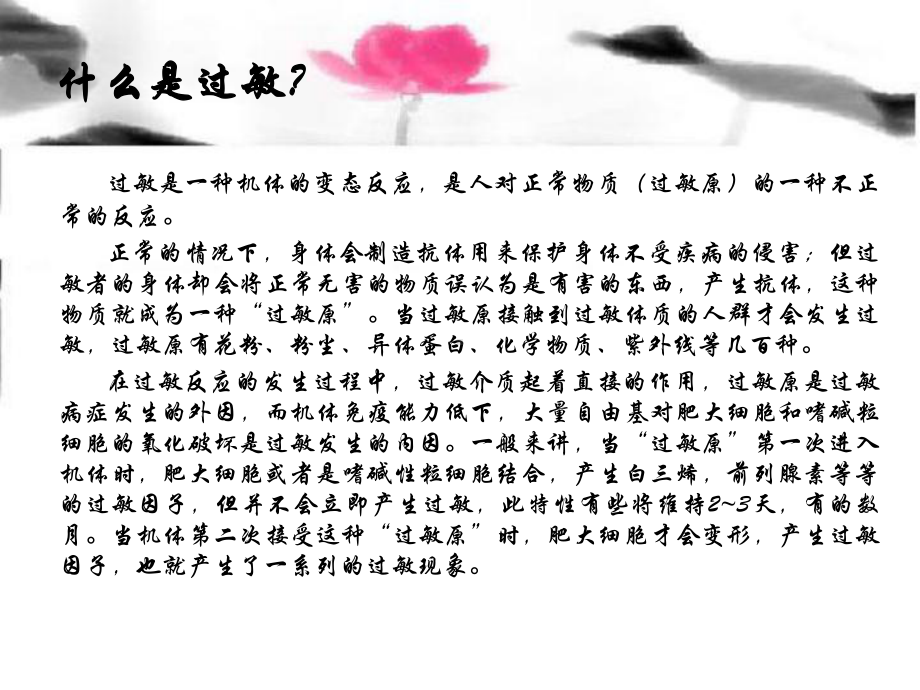 什么是过敏?
过敏是一种机体的变态反应，是人对正常物质（过敏原）的一种不正
常的反应。
正常的情况下，身体会制造抗体用来保护身体不受疾病的侵害；但过
敏者的身体却会将正常无害的物质误认为是有害的东西，产生抗体，这种
物质就成为一种“过敏原”。当过敏原接触到过敏体质的人群才会发生过
敏，过敏原有花粉、粉尘、异体蛋白、化学物质、紫外线等几百种。
在过敏反应的发生过程中，过敏介质起着直接的作用，过敏原是过敏
病症发生的外因，而机体免疫能力低下，大量自由基对肥大细胞和嗜碱粒
细胞的氧化破坏是过敏发生的内因。一般来讲，当“过敏原”第一次进入
机体时，肥大细胞或者是嗜碱性粒细胞结合，产生白三烯，前列腺素等等
的过敏因子，但并不会立即产生过敏，此特性有些将维持2~3天，有的数
月。当机体第二次接受这种“过敏原”时，肥大细胞才会变形，产生过敏
因子，也就产生了一系列的过敏现象。